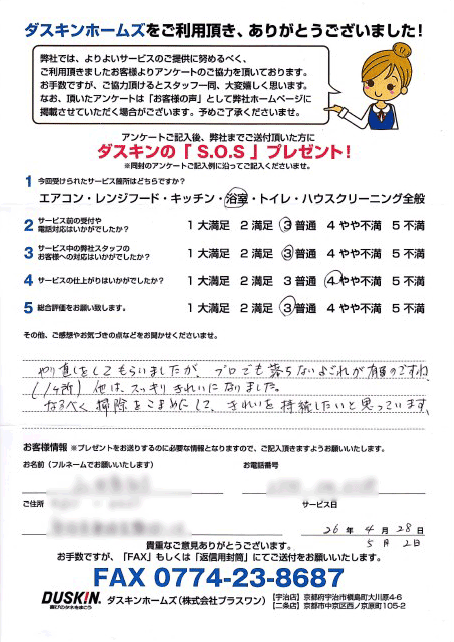 ダスキンホームズをご利用頂き、ありがとうございました!
弊社では、よりよいサービスのご提供に努めるべく、
ご利用頂きましたお客様よりアンケートのご協力を頂いております。
お手数ですが、ご協力頂けるとスタッフ一同、大変嬉しく思います。
なお、頂いたアンケートは「お客様の声」として弊社ホームページに
掲載させていただく場合がございます。予めご了承くださいませ。
アンケートご記入後、弊社までご送付頂いた方に
ダスキンの「S.O.S」プレゼント!
※同封のアンケートご記入例に沿ってご記入くださいませ。
1 今回受けられたサービス箇所はどちらですか?
エアコン・レンジフード・キッチン・浴室・トイレ・ハウスクリーニング全般
2 サービス前の受付や
電話対応はいかがでしたか? 1 大満足 2 満足 3 普通 4 やや不満 5 不満
3 サービス中の弊社スタッフの
お客様への対応はいかがでしたか? 1 大満足 2 満足 3 普通 4 やや不満 5 不満
4 サービスの仕上がりはいかがでしたか? 1 大満足 2 満足 3 普通 4 やや不満 5 不満
5 総合評価をお願い致します。 1 大満足 2 満足 3 普通 4 やや不満 5 不満
その他、ご感想やお気づきの点などをお聞かせくださいませ。
やり直しをしてもらいましたが、プロでも落ちないよごれが有るのですね、
(1ヶ所) 他は、スッキリきれいになりました。
なるべく掃除をこまめにして、きれいを持続したいと思っています。
お客様情報 ※プレゼントをお送りするのに必要な情報となりますので、ご記入頂きますようお願いいたします。
お名前(フルネームでお願いいたします) お電話番号
ご住所 サービス日
26年 4月 28日
5月 2日
貴重なご意見ありがとうございます。
お手数ですが、「FAX」もしくは「返信用封筒」にてご送付をお願いいたします。
FAX 0774-23-8687
DUSKIN. 喜びのタネをまこう ダスキンホームズ(株式会社プラスワン) 【宇治店】京都府宇治市槇島町大川原4-6
【二条店】京都市中京区西ノ京原町105-2